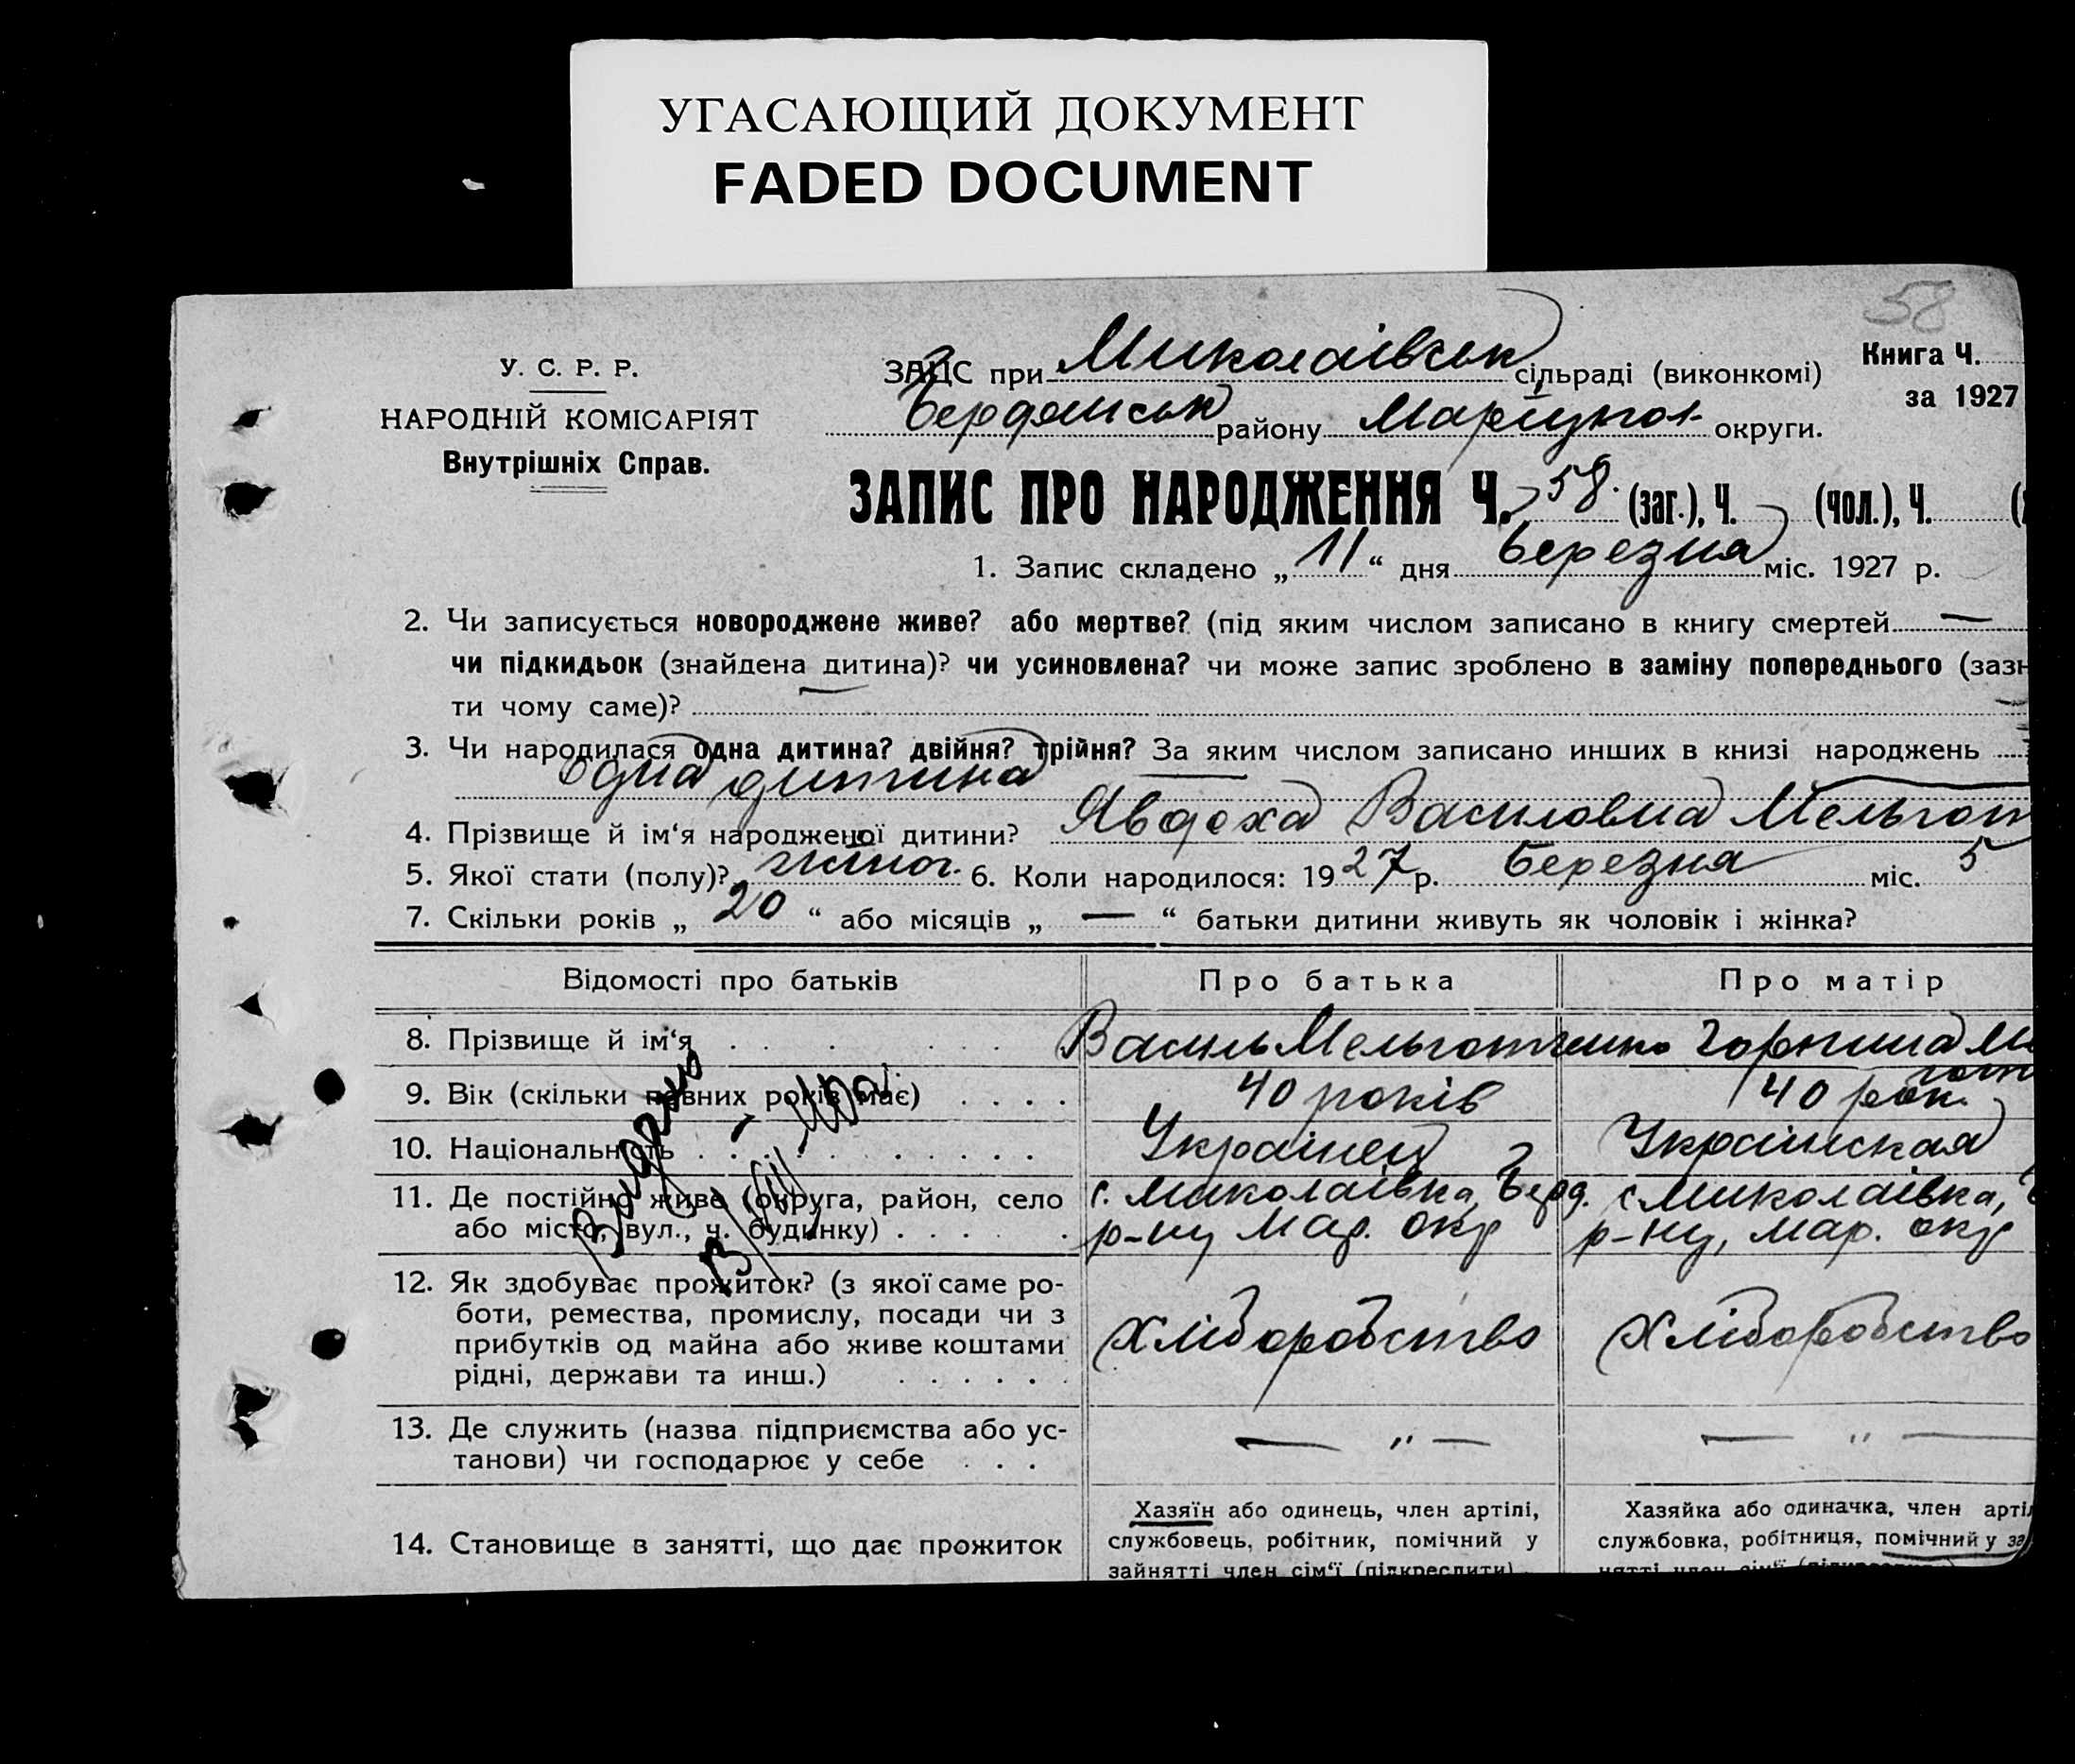 УГАСАЮЩИЙ ДОКУМЕНТ
FADED DOCUMENT
58
У. С. Р. Р.
НАРОДНІЙ КОМІСАРІЯТ
Внутрішніх Справ.
ЗАЦС при Миколаівськ сільраді (виконкомі)
Книга Ч.
за 1927
Бердянськ району Маріупол округи.
ЗАПИС ПРО НАРОДЖЕННЯ Ч. 58. (заг.), Ч. (чол.), Ч.
1. Запис складено „ 11 “ дня березня міс. 1927 р.
2. Чи записується новороджене живе? або мертве? (під яким числом записано в книгу смертей —
чи підкидьок (знайдена дитина)? чи усиновлена? чи може запис зроблено в заміну попереднього (зазн
ти чому саме)? —
3. Чи народилася одна дитина? двійня? трійня? За яким числом записано инших в книзі народжень
одна дитина
4. Прізвище й ім‘я народженої дитини? Явдоха Василовна
5. Якої стати (полу)? жіноч. 6. Коли народилося: 19 27 р. Березня міс. 5
7. Скільки років „ 20 “ або місяців „ — “ батьки дитини живуть як чоловік і жінка?
Відомості про батьків
Про батька
Про матір
8. Прізвище й ім‘я
Василь
9. Вік (скільки повних років має)
40 років
40 рок.
10. Національність
Украінец
Украінская
11. Де постійно живе (округа, район, село
або місто, вул., ч. будинку)
с. Миколаівка, Берд.
р-ну Мар. окр
с Миколаівка,
р-ну, Мар. окр
Видано
12. Як здобуває прожиток? (з якої саме ро-
боти, ремества, промислу, посади чи з
прибутків од майна або живе коштами
рідні, держави та инш.)
Хліборобство
Хліборобство
13. Де служить (назва підприємства або ус-
танови) чи господарює у себе
— „ —
— „ —
14. Становище в занятті, що дає прожиток
Хазяїн або одинець, член артілі,
службовець, робітник, помічний у
зайнятті член сім‘ї (підкреслити)
Хазяйка або одиначка, член арті
службовка, робітниця, помічний у за